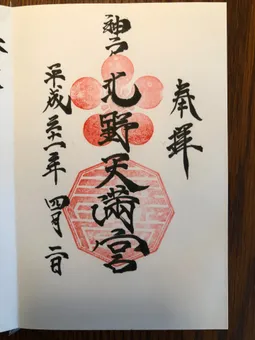 奉拝
神戸
北野天満宮
平成三十一年四月二日